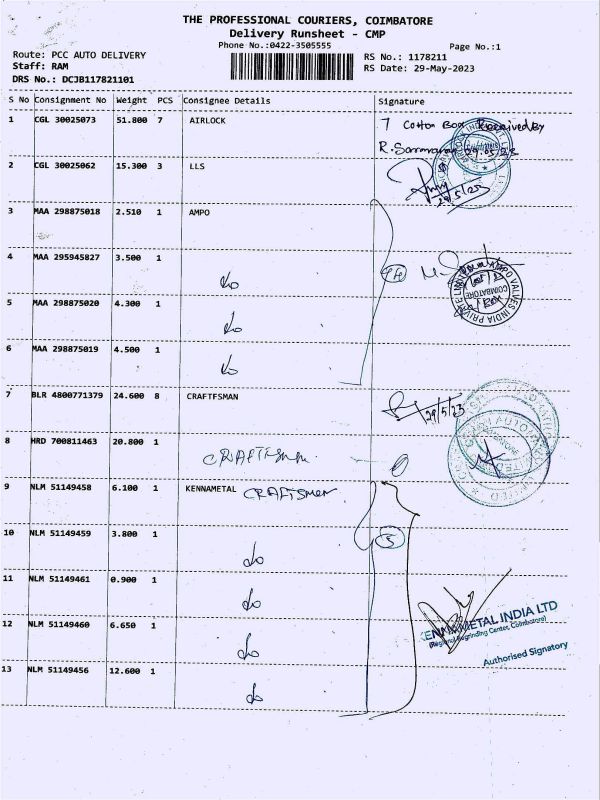 THE PROFESSIONAL COURIERS, COIMBATORE
Delivery Runsheet - CMP
Phone No.:0422-3505555
Page No.:1
Route: PCC AUTO DELIVERY
Staff: RAM
DRS No.: DCJB117821101
RS No.: 1178211
RS Date: 29-May-2023
S No Consignment No Weight PCS Consignee Details Signature
1 CGL 30025073 51.800 7 AIRLOCK
7 Cotton Box Received By
29.05.23
2 CGL 30025062 15.300 3 LLS
29/5/23
3 MAA 298875018 2.510 1 AMPO
4 MAA 295945827 3.500 1 do
AMPO VALVES INDIA PRIVATE LIMITED
COIMBATORE
5 MAA 298875020 4.300 1 do
6 MAA 298875019 4.500 1 do
7 BLR 4800771379 24.600 8 CRAFTFSMAN
29/5/23
8 HRD 700811463 20.800 1 CRAFTSMAN
9 NLM 51149458 6.100 1 KENNAMETAL CRAFTSMEN
10 NLM 51149459 3.800 1 do 5
11 NLM 51149461 0.900 1 do
12 NLM 51149460 6.650 1 do
KENNAMETAL INDIA LTD
(Regional Regrinding Center, Coimbatore)
Authorised Signatory
13 NLM 51149456 12.600 1 do